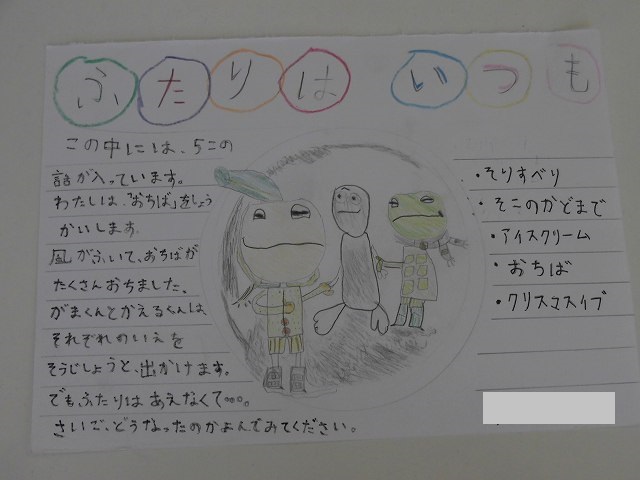 ふたりは いつも
この中には、5この
話が入っています。
わたしは、「おちば」をしょう
かいします。
風がふいて、おちばが
たくさんおちました。
がまくんとかえるくんは
それぞれのいえを
そうじしようと、出かけます。
でもふたりはあえなくて…。
さいご、どうなったのかよんでみてください。
・そりすべり
・そこのかどまで
・アイスクリーム
・おちば
・クリスマスイブ